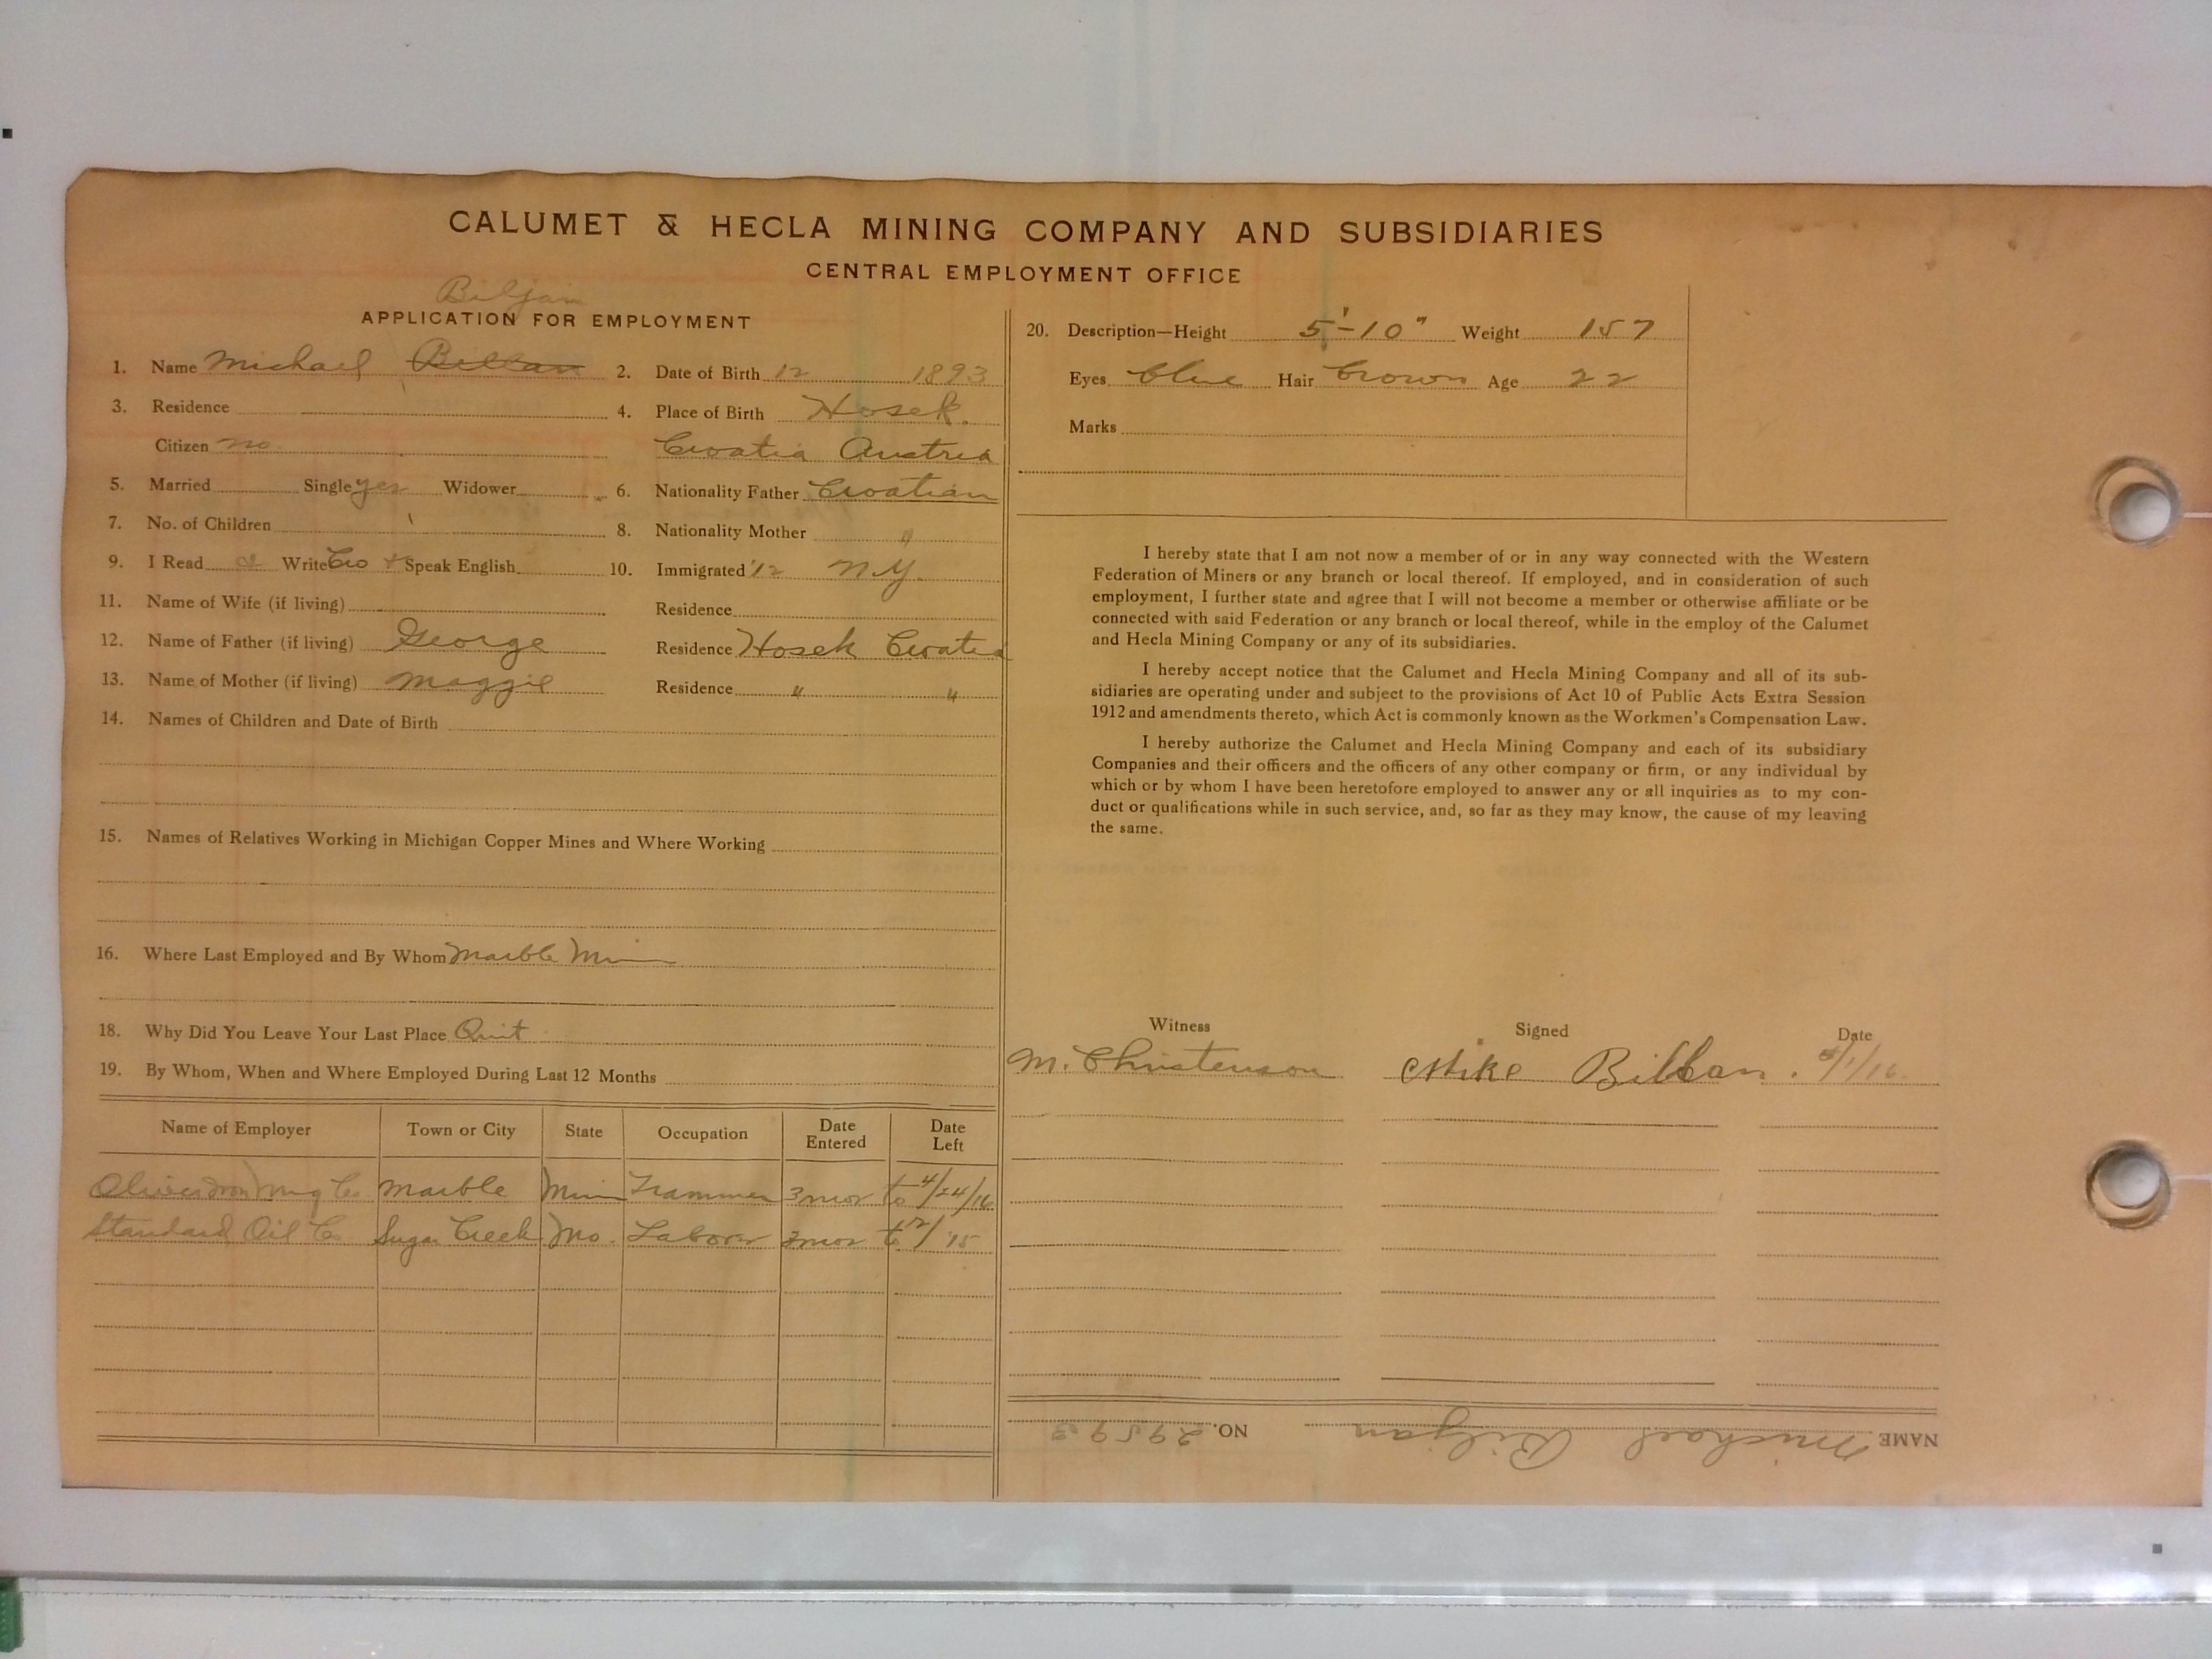 CALUMET & HECLA MINING COMPANY AND SUBSIDIARIES
CENTRAL EMPLOYMENT OFFICE
Biljan
APPLICATION FOR EMPLOYMENT
1. Name Michael Billan 2. Date of Birth 12 1893
3. Residence 4. Place of Birth Hosek.
Citizen no Croatia Austria
5. Married Single yes Widower 6. Nationality Father Croatian
7. No. of Children 8. Nationality Mother "
9. I Read & Write Cro + Speak English 10. Immigrated '12 N.Y.
11. Name of Wife (if living) Residence
12. Name of Father (if living) George Residence Hosek Croatia
13. Name of Mother (if living) Maggie Residence " "
14. Names of Children and Date of Birth
15. Names of Relatives Working in Michigan Copper Mines and Where Working
16. Where Last Employed and By Whom Marble Minn
18. Why Did You Leave Your Last Place Quit
19. By Whom, When and Where Employed During Last 12 Months
Name of Employer Town or City State Occupation Date Entered Date Left
Oliver Iron Mng Co Marble Minn Trammer 3 mos to 4/24/16
Standard Oil Co Sugar Creek Mo. Laborer 3 mos to 12/ '15
20. Description—Height 5'-10" Weight 157
Eyes blue Hair brown Age 22
Marks
I hereby state that I am not now a member of or in any way connected with the Western
Federation of Miners or any branch or local thereof. If employed, and in consideration of such
employment, I further state and agree that I will not become a member or otherwise affiliate or be
connected with said Federation or any branch or local thereof, while in the employ of the Calumet
and Hecla Mining Company or any of its subsidiaries.
I hereby accept notice that the Calumet and Hecla Mining Company and all of its sub-
sidiaries are operating under and subject to the provisions of Act 10 of Public Acts Extra Session
1912 and amendments thereto, which Act is commonly known as the Workmen's Compensation Law.
I hereby authorize the Calumet and Hecla Mining Company and each of its subsidiary
Companies and their officers and the officers of any other company or firm, or any individual by
which or by whom I have been heretofore employed to answer any or all inquiries as to my con-
duct or qualifications while in such service, and, so far as they may know, the cause of my leaving
the same.
Witness Signed Date
M. Christenson Mike Billan. 5/1/16.
NAME Michael Biljan NO. 29593